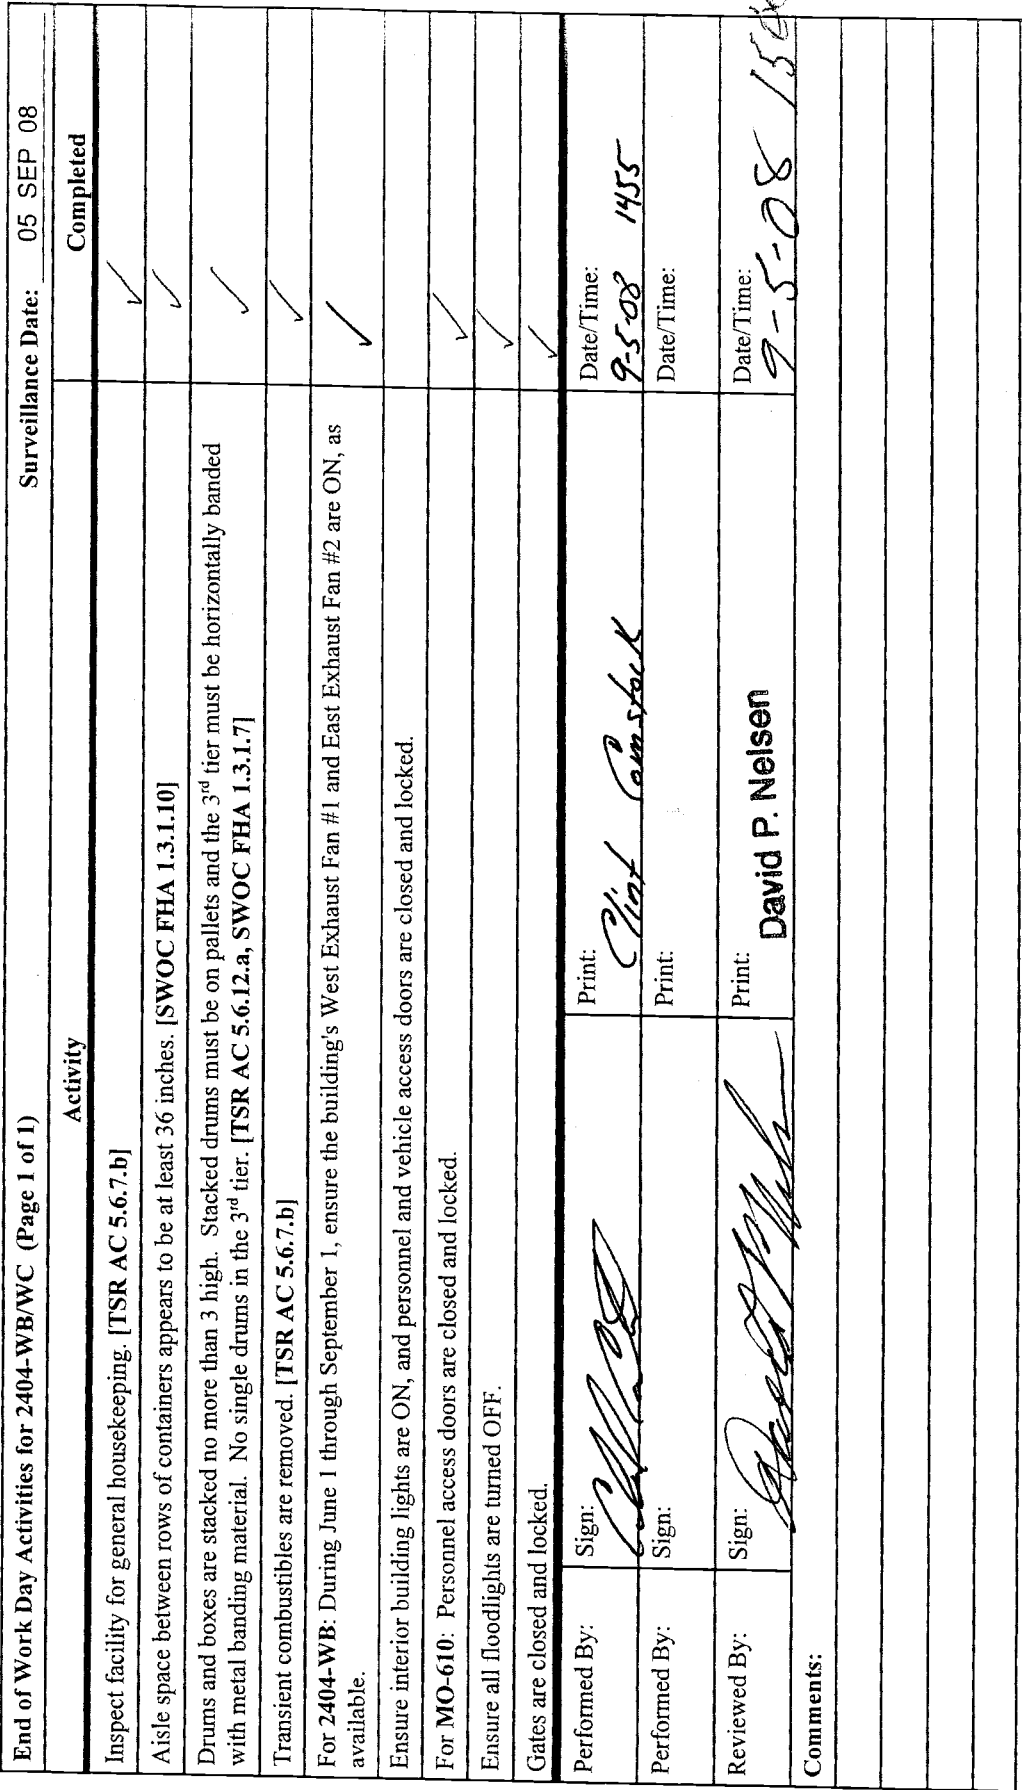 End of Work Day Activities for 2404-WB/WC (Page 1 of 1) Surveillance Date: 05 SEP 08
Activity Completed
Inspect facility for general housekeeping. [TSR AC 5.6.7.b] ✓
Aisle space between rows of containers appears to be at least 36 inches. [SWOC FHA 1.3.1.10] ✓
Drums and boxes are stacked no more than 3 high. Stacked drums must be on pallets and the 3rd tier must be horizontally banded
with metal banding material. No single drums in the 3rd tier. [TSR AC 5.6.12.a, SWOC FHA 1.3.1.7] ✓
Transient combustibles are removed. [TSR AC 5.6.7.b] ✓
For 2404-WB: During June 1 through September 1, ensure the building's West Exhaust Fan #1 and East Exhaust Fan #2 are ON, as
available. ✓
Ensure interior building lights are ON, and personnel and vehicle access doors are closed and locked.
For MO-610: Personnel access doors are closed and locked. ✓
Ensure all floodlights are turned OFF. ✓
Gates are closed and locked. ✓
Performed By: Sign: Print: Clint Comstock Date/Time: 9-5-08 1455
Performed By: Sign: Print: Date/Time:
Reviewed By: Sign: Print: David P. Nelsen Date/Time: 9-5-08
Comments: